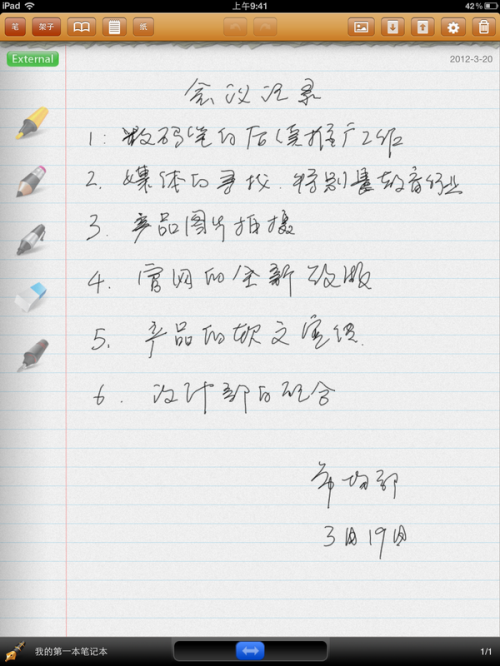 iPad 上午9:41 42%
笔 架子 纸
External 2012-3-20
会议记录
1: 数码笔的后续推广工作
2. 媒体的寻找.特别是教育行业
3. 产品图片拍摄
4. 官网的全新改版
5. 产品的软文宣传.
6. 设计部的配合
市场部
3月19日
我的第一本笔记本 1/1